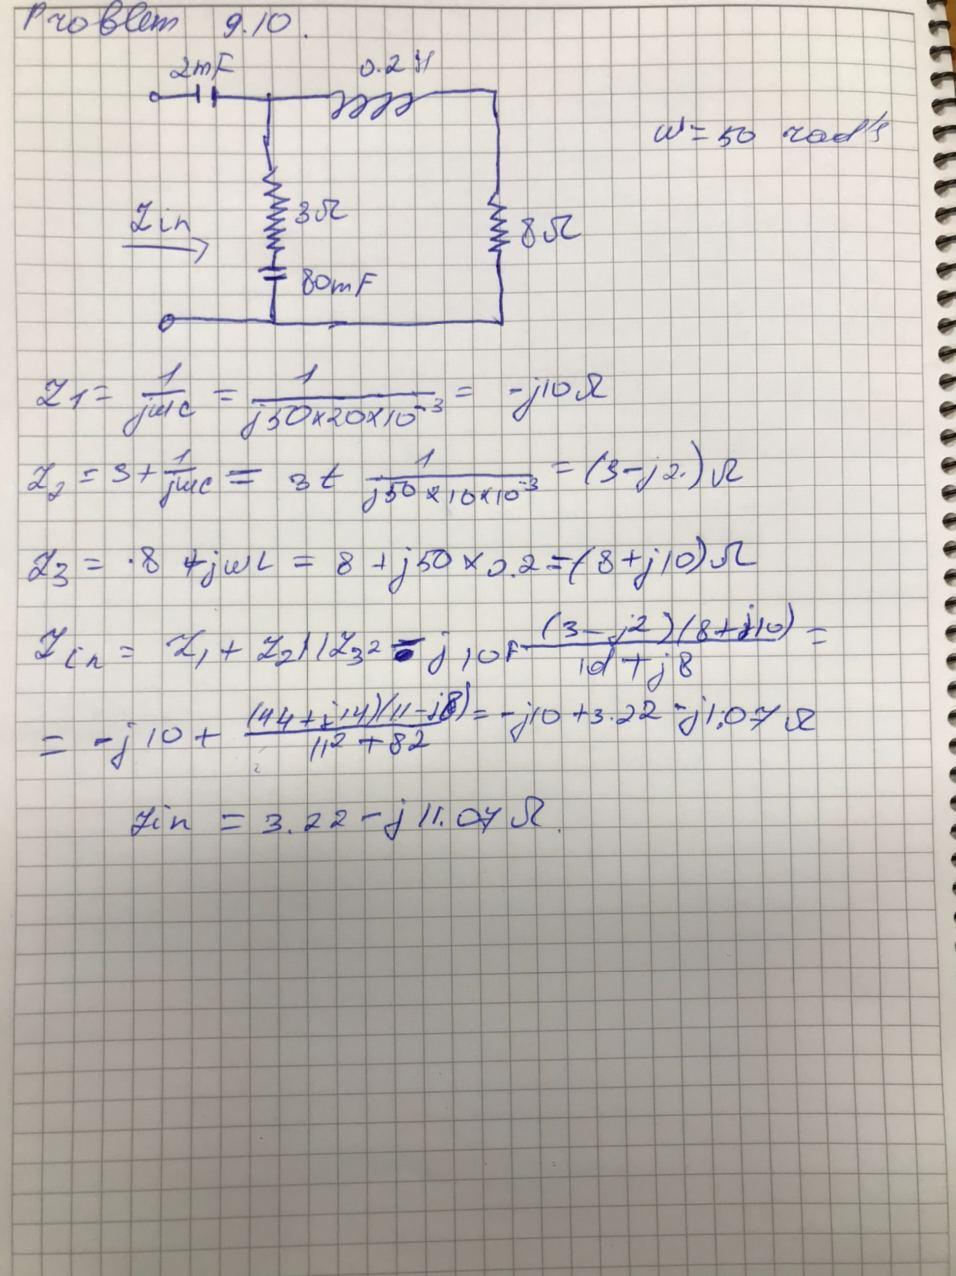 Problem 9.10.
2mF
0.2H
ω = 50 rad/s
Zin
3Ω
8Ω
80mF
Z1 = 1/jωc = 1/j50×20×10^-3 = -j10Ω
Z2 = 3 + 1/jωc = 3 + 1/j50×10×10^-3 = (3-j2.)Ω
Z3 = ·8 + jωL = 8 + j50 × 0.2 = (8 + j10)Ω
Zin = Z1 + Z2||Z3 = -j10 + (3-j2)(8+j10)/11+j8 =
= -j10 + (44+j14)(11-j8)/11^2+82 = -j10 + 3.22 - j1.07Ω
Zin = 3.22 - j11.07Ω.